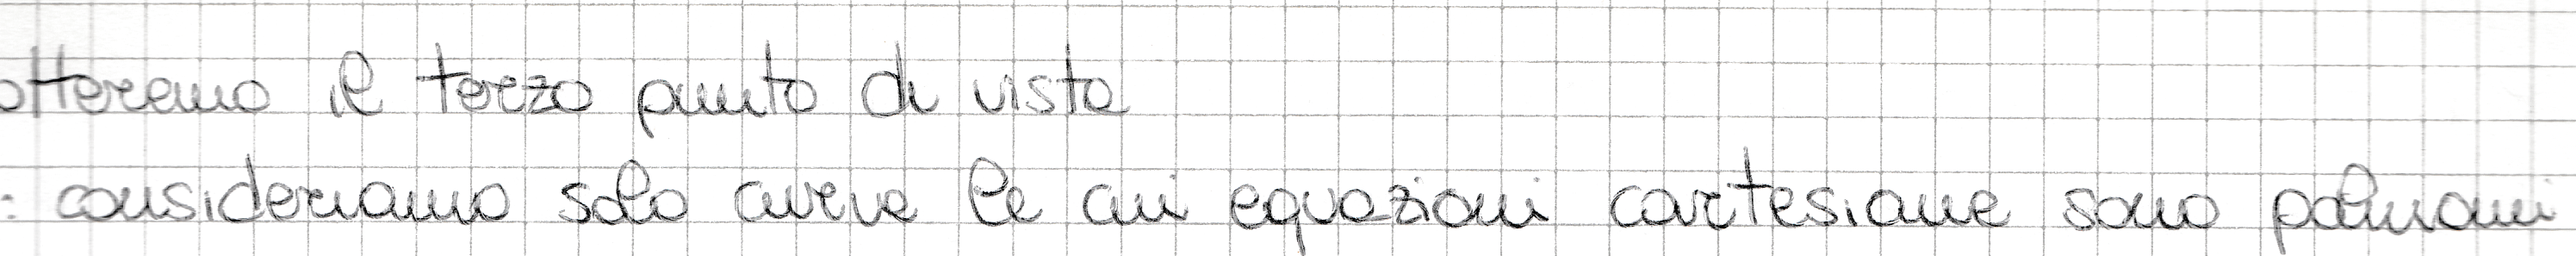 otteremo il terzo punto di vista
: consideriamo solo curve le cui equazioni cartesiane sono polinomi